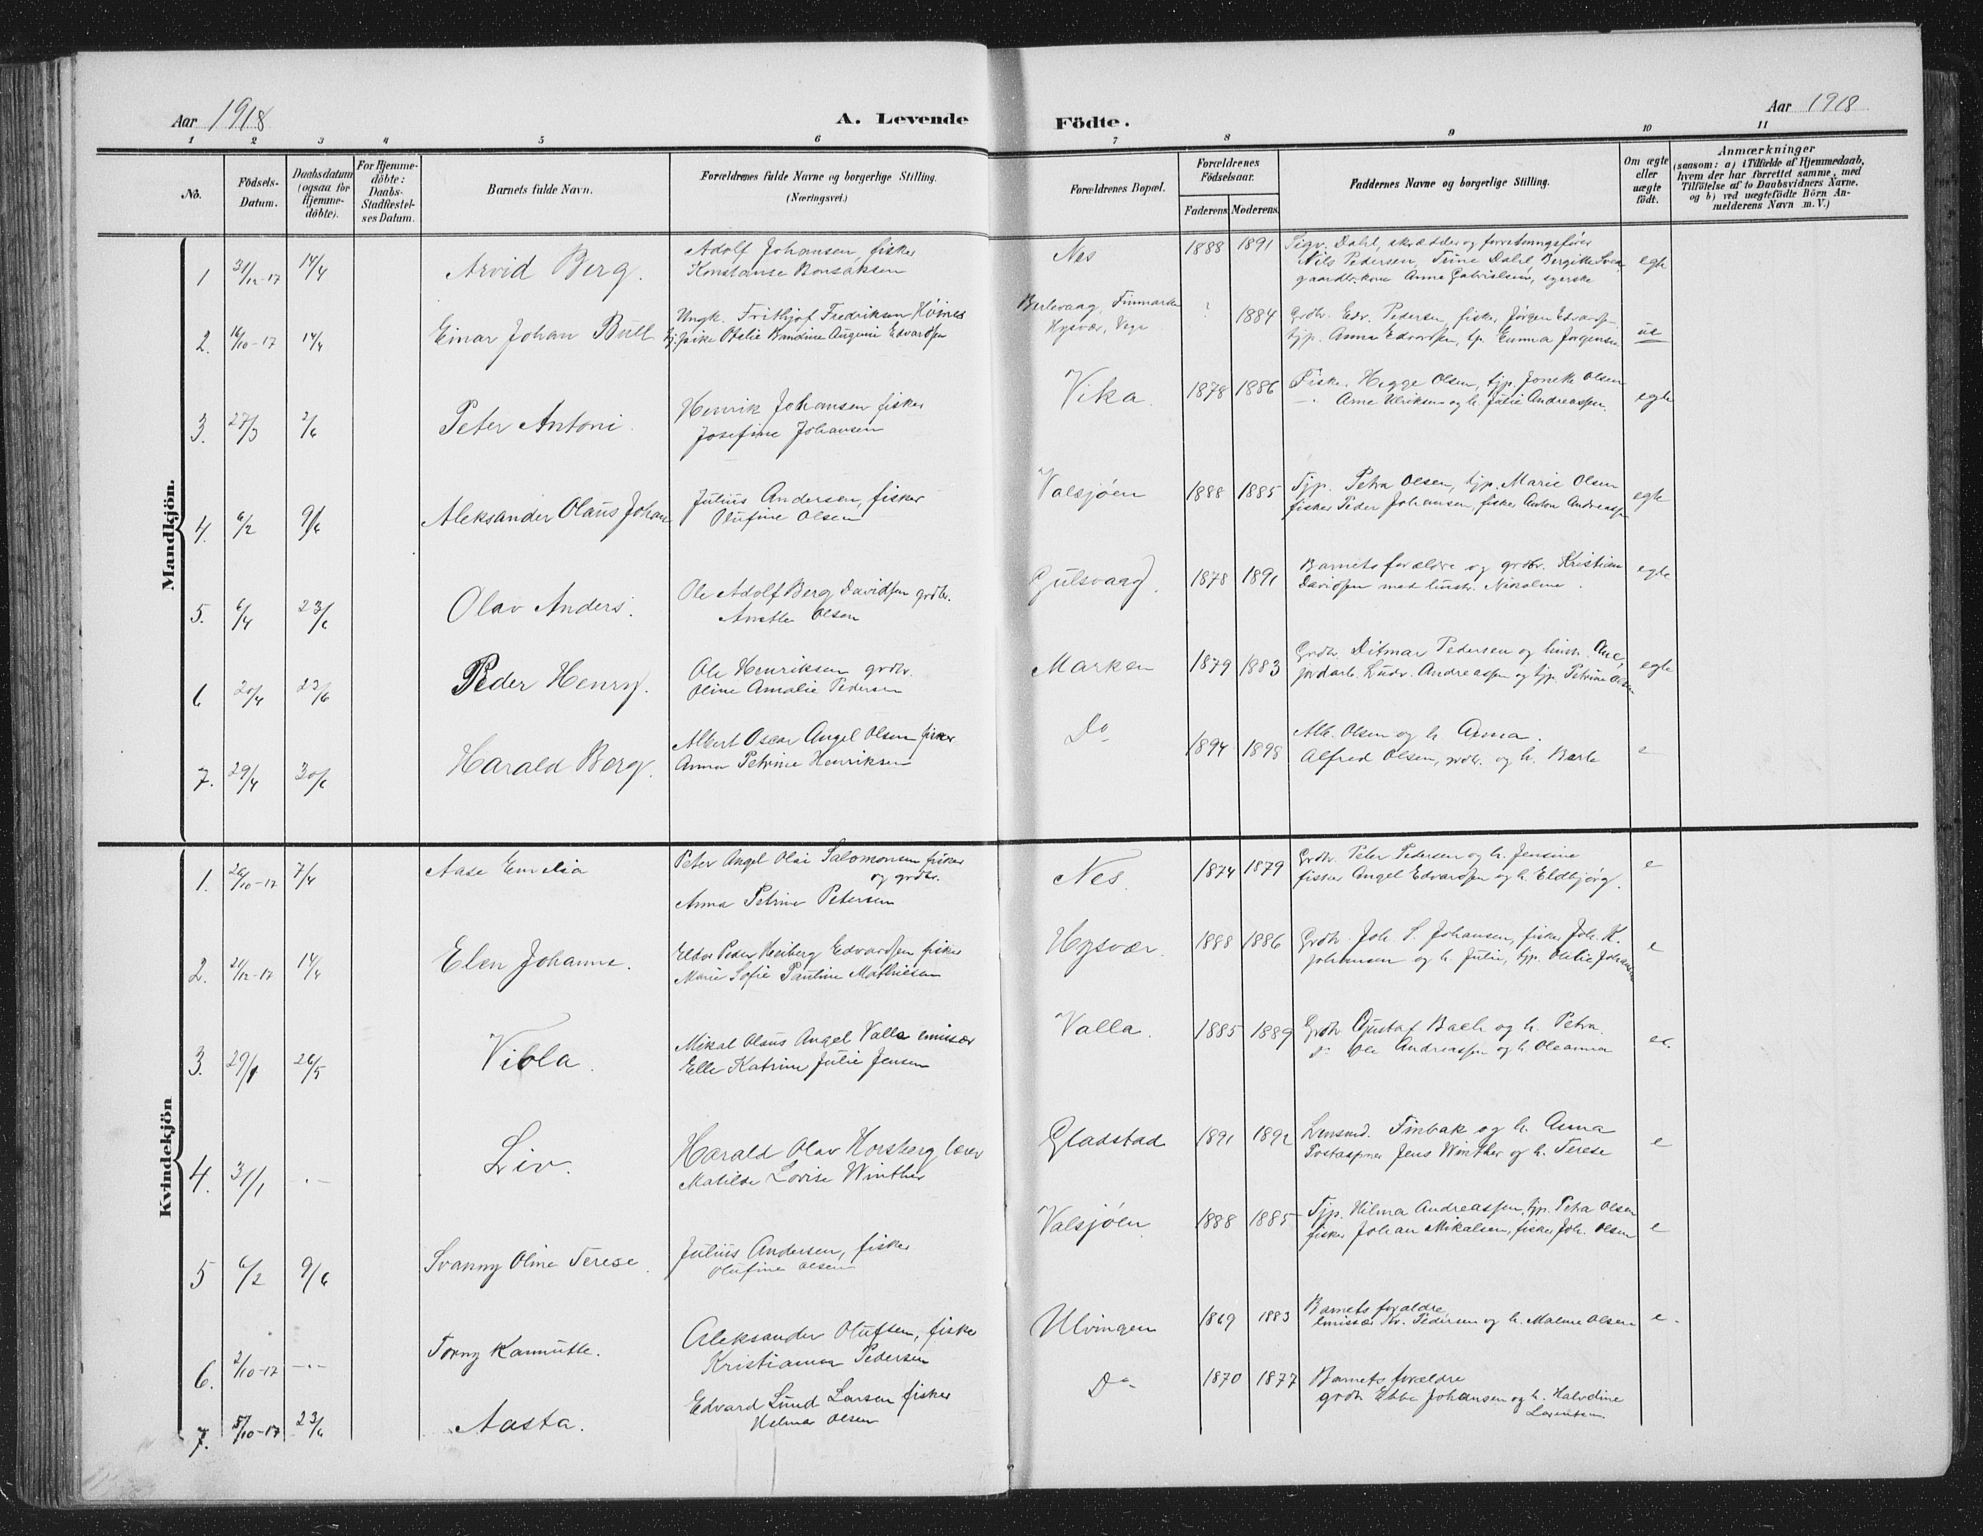 Aar 1918
A. Levende
Födte.
Aar 1918
1 2 3 4 5 6 7 8 9 10 11
No.
Födsels-Datum.
Daabsdatum (ogsaa for Hjemme-döbte).
For Hjemme-döbte: Daabs-Stadfæstel-ses Datum.
Barnets fulde Navn.
Forældrenes fulde Navne og borgerlige Stilling.
(Næringsvei.)
Forældrenes Bopæl.
Forældrenes Födselsaar.
Faderens. Moderens.
Faddernes Navne og borgerlige Stilling.
Om ægte eller uægte födt.
Anmærkninger
(saasom: a) i Tilfælde af Hjemmedaab,
hvem der har forrettet samme, med
Tilföielse af to Daabsvidners Navne,
og b) ved uægtefödte Börn An-
melderens Navn m. V.)
Mandkjön.
1 31/12-17 14/4 Arvid Berg.
Adolf Johansen, fisker
Konstanse Bonsaksen
Nes 1888 1891
Sigv. Dahl, skrædder og forretningsfører
Nils Pedersen, Trine Dahl, Bergitte
gaardbr.kone Anna Gabrielsen, syerske
egte
2. 16/10-17 14/4 Einar Johan Bull
Ungk. Frithjof Fredriksen Høines
pike Otelie Vandine Augenie Edvardsen
Berlevaag, Finmarken
Hysvær, Vega
? 1884
Grdbr. Edv. Pedersen, fisker Jørgen Edvardsen,
tjp. Anna Edvardsen, tp. Emma Jørgensen
ue
3. 27/3 2/6 Peter Antoni.
Henrik Johansen fisker
Josefine Johansen
Vika. 1878 1886
Fisker Hegge Olsen, tjp. Jonette Olsen
—"— Arne Ulriksen og h. Julie Andreassen.
egte
4. 6/2 9/6 Aleksander Olaus Johan
Julius Andersen, fisker
Olufine Olsen
Valsjøen 1888 1885
Tjp. Petra Olsen, tjp. Marie Olsen
fisker Peder Johansen, fisker Anton Andreassen
egte
5. 6/4 23/6 Olav Anders.
Ole Adolf Berg Davidsen grdbr.
Anette Olsen
Gulsvaag. 1878 1891
Barnets forældre og grdbr. Kristian
Davidsen med hustr. Nikoline.
egte
6 20/4 23/6 Peder Henry.
Ole Henriksen grdbr.
Oline Amalie Pedersen
Marken 1879 1883
Grdbr. Ditmar Pedersen og hustr. Ane,
jordarb. Ludv. Andreassen og tjp. Petrine Olsen
egte
7. 29/4 30/6 Harald Berg.
Albert Oscar Angel Olsen fisker
Anna Petrine Henriksen
Do 1894 1898
Alb. Olsen og h. Anna.
Alfred Olsen, grdbr. og h. Berte
e
Kvindekjön
1. 26/10-17 7/4 Aase Emelia
Peter Angel Olai Salomonsen fisker
og grdbr.
Anna Petrine Petersen
Nes. 1874 1879
Grdbr. Peter Pedersen og h. Jensine
fisker Angel Edvardsen og h. Eldbjørg.
e
2. 21/12-17 14/4 Elen Johanne.
Eldor Peder Heiberg Edvardsen fisker
Marie Sofie Pauline Mathiesen
Hysvær. 1888 1886
Grdbr. Joh. S. Johansen, fisker Joh. K.
Johansen og h. Julie, tjp. Otelie Johansen
e
3. 29/1 26/5 Viola.
Mikal Olaus Angel Valla emissær
Elle Katrine Julie Jensen
Valla. 1885 1889
Grdbr. Gustaf Bach og h. Petra.
do Ole Andreassen og h. Oleanna
e.
4. 31/1 —"— Liv.
Harald Olav Horsberg lærer
Matilde Lovise Winther
Gladstad 1891 1892
Lensmd. Finbak og h. Anna
Postaapner Jens Winther og h. Terese
e
5 6/2 9/6 Svanny Oline Terese.
Julius Andersen, fisker
Olufine Olsen
Valsjøen 1888 1885
Tjp. Hilma Andreassen, tjp. Petra Olsen
fisker Johan Mikalsen, fisker Joh. Olsen
e
6. 2/10-17 —"— Torny Kamutte.
Aleksander Olufsen, fisker
Kristianna Pedersen
Ulvingen 1869 1883
Barnets forældre,
emissær Kr. Pedersen og h. Malene Olsen
e.
7. 5/10-17 23/6 Aasta.
Edvard Lund Larsen fisker
Helmar Olsen
Do 1870 1877
Barnets forældre
grdbr Ebbe Johansen og h. Halvdine
Lorentsen